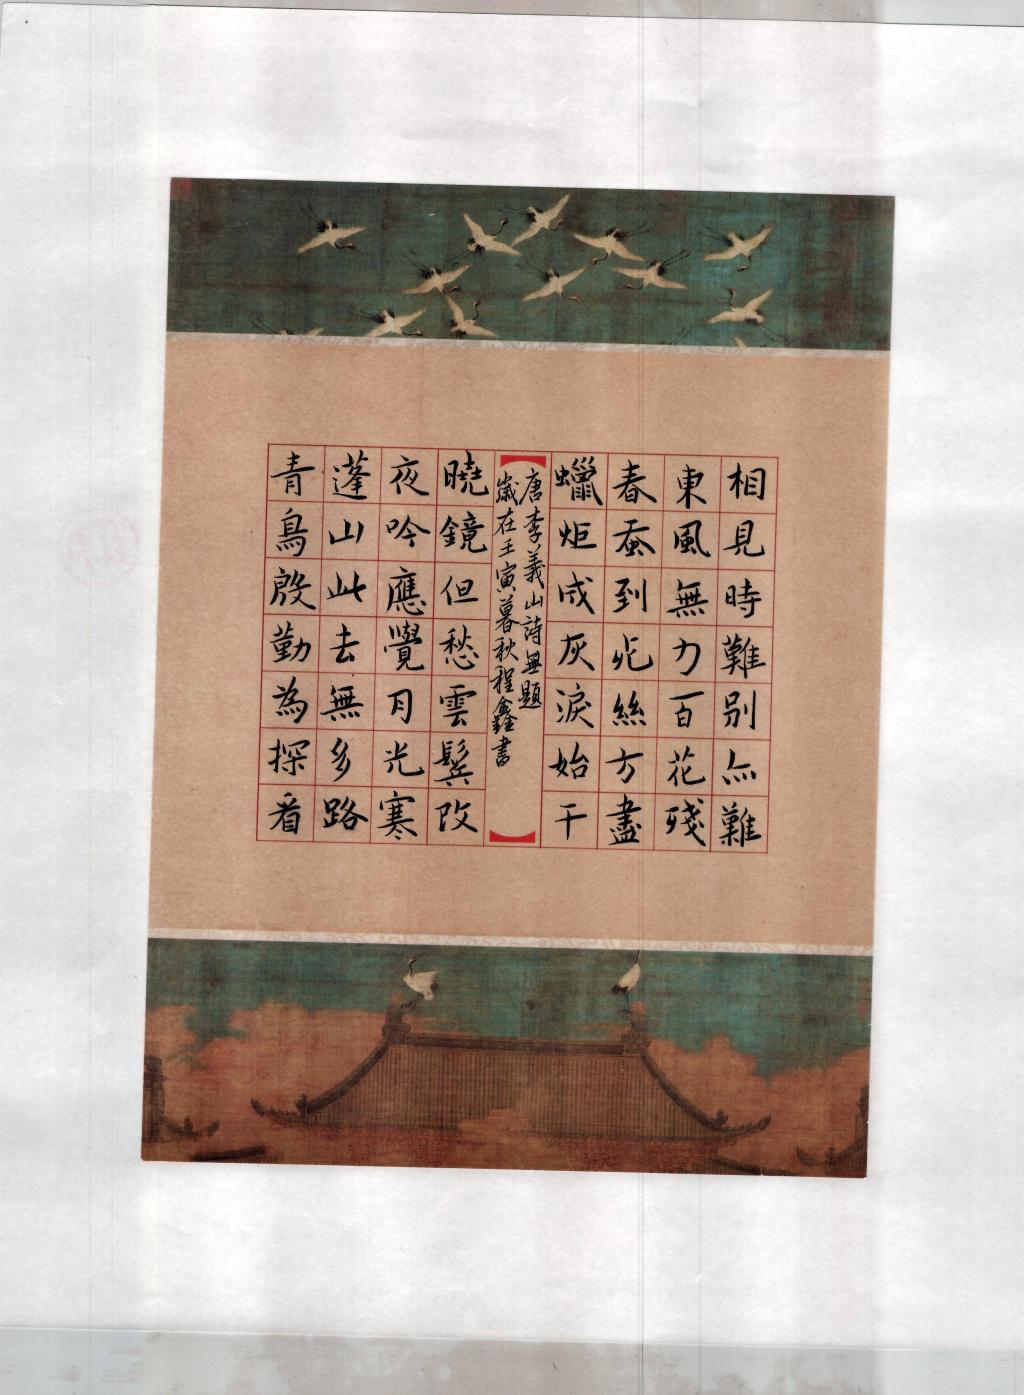 相見時難別亦難
東風無力百花殘
春蚕到死絲方盡
蠟炬成灰淚始干
唐李義山詩無題
歲在壬寅暮秋程鑫書
曉鏡但愁雲鬢改
夜吟應覺月光寒
蓬山此去無多路
青鳥殷勤為探看